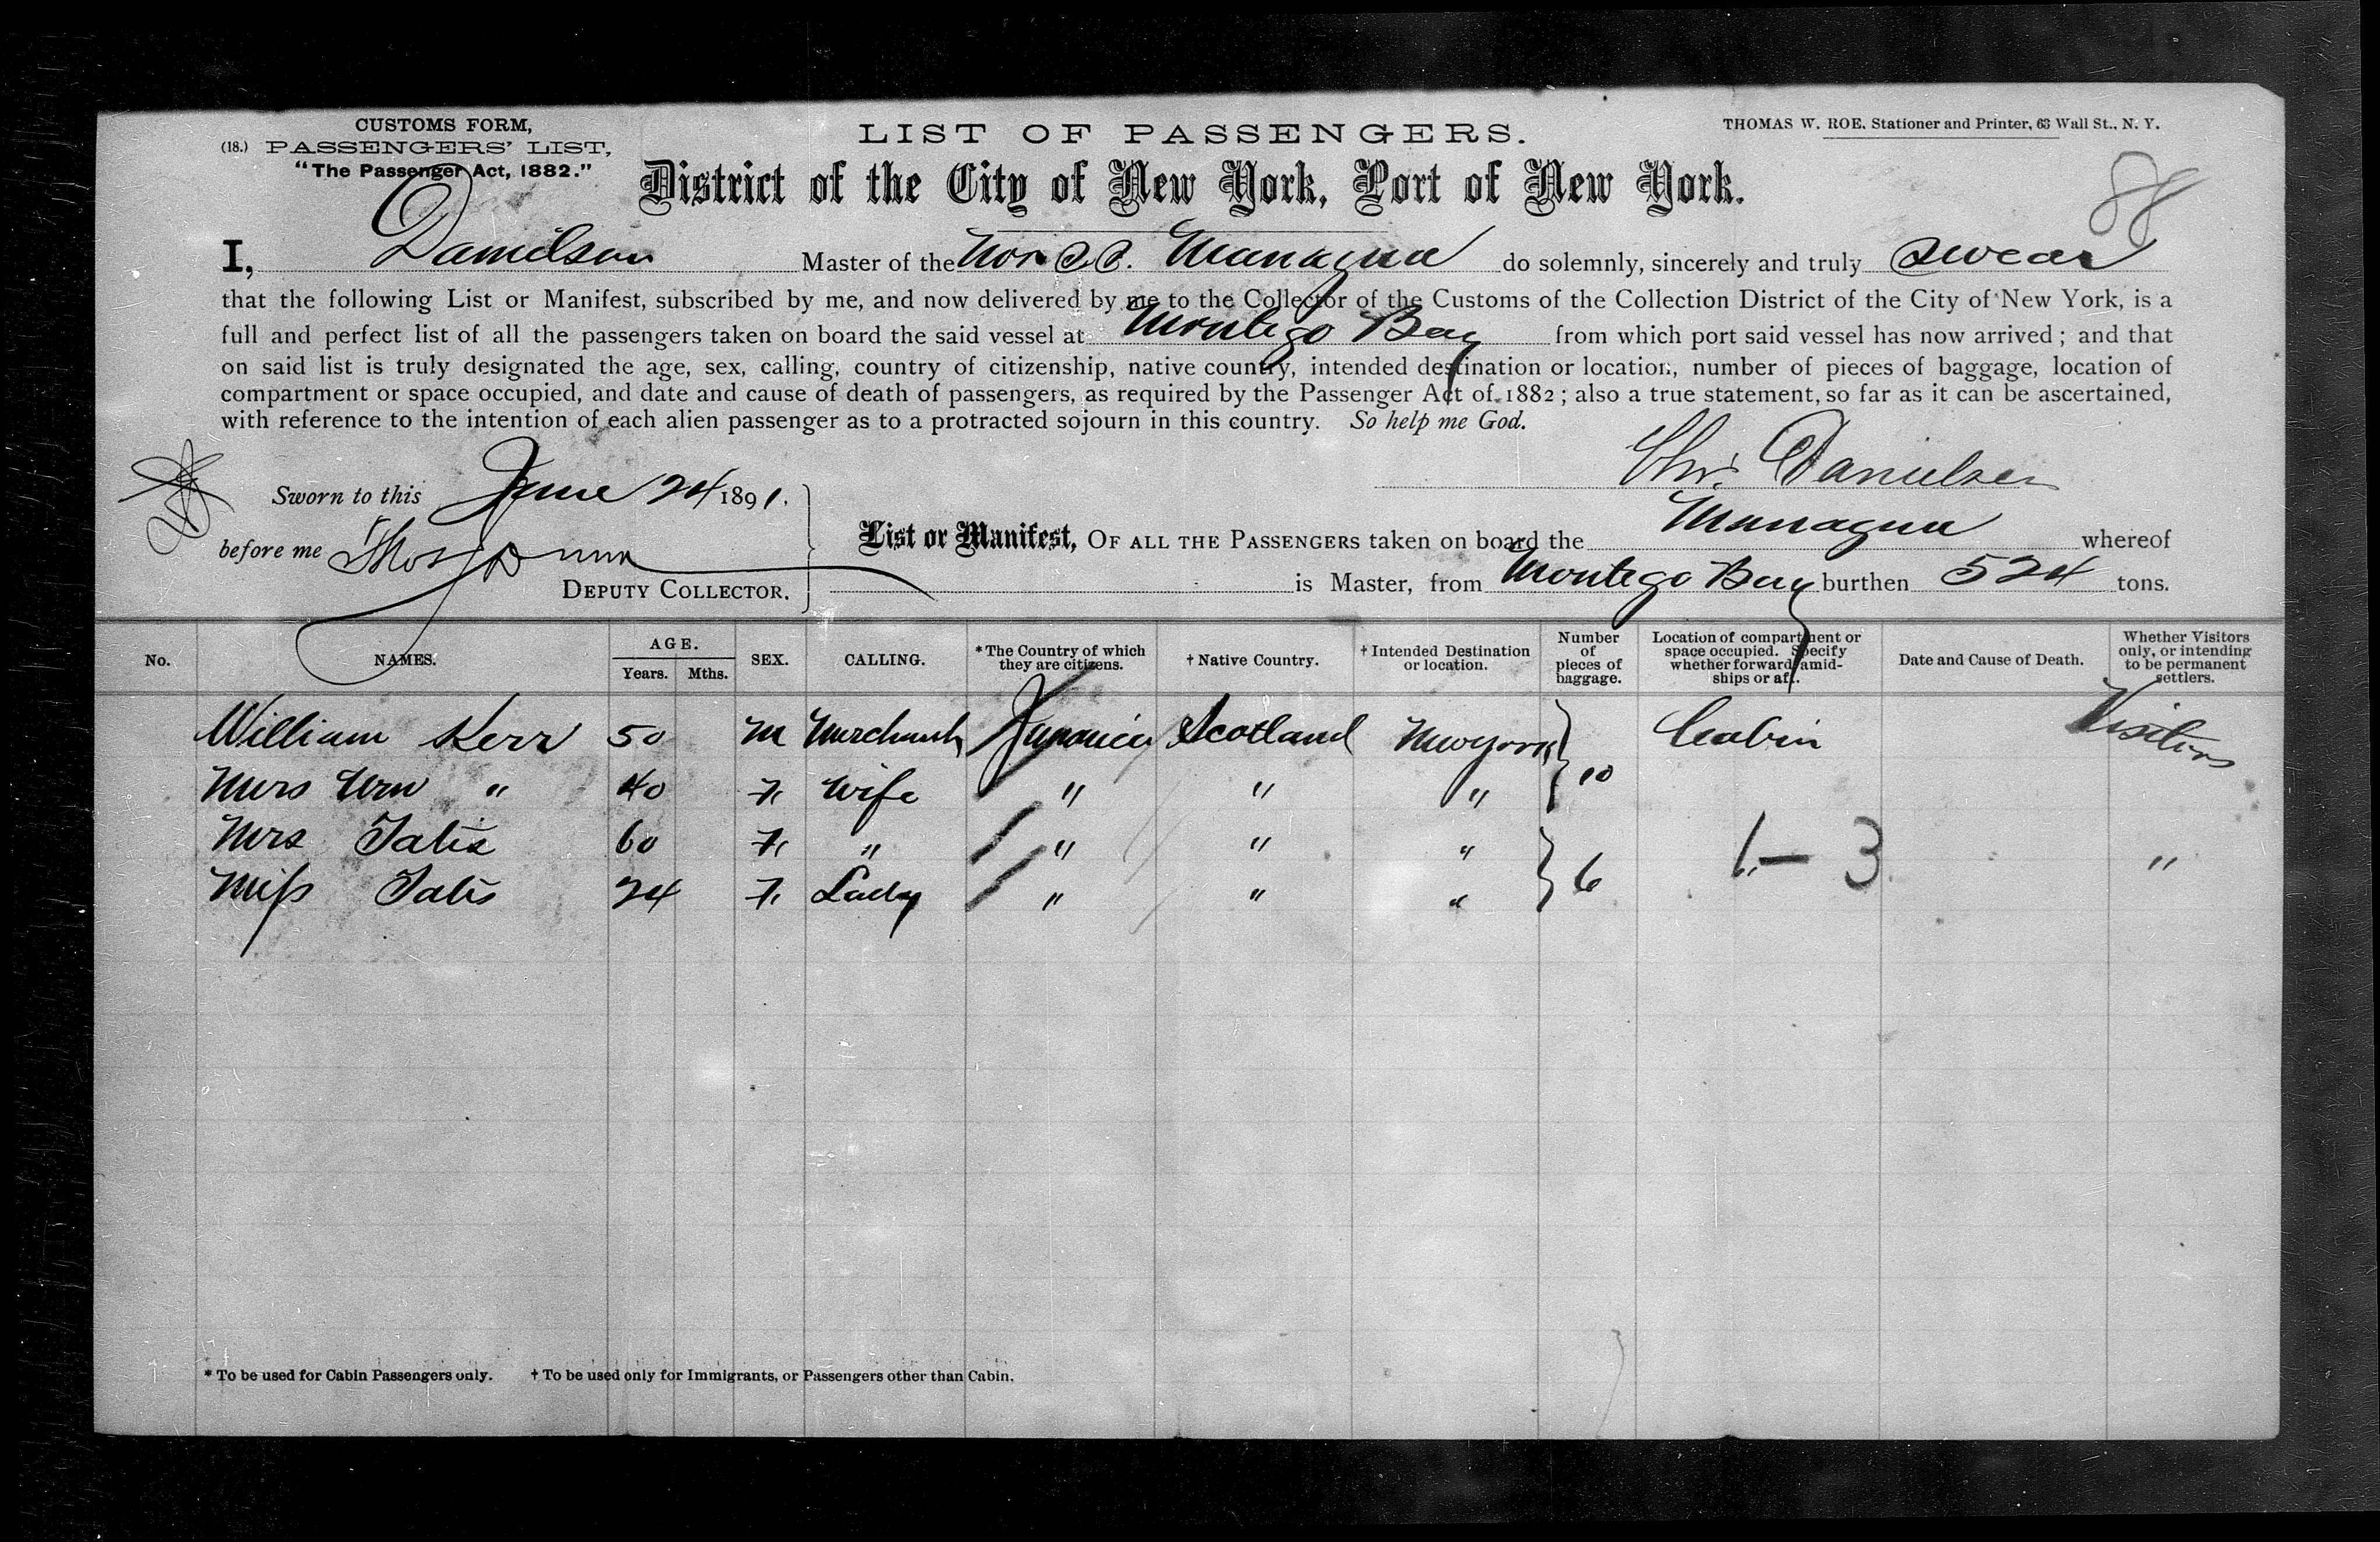 CUSTOMS FORM,
(18.) PASSENGERS' LIST,
"The Passenger Act, 1882."
LIST OF PASSENGERS.
THOMAS W. ROE, Stationer and Printer, 63 Wall St., N. Y.
District of the City of New York, Port of New York.
88
I, Danielsen Master of the Nor SS. Managua do solemnly, sincerely and truly swear
that the following List or Manifest, subscribed by me, and now delivered by me to the Collector of the Customs of the Collection District of the City of New York, is a
full and perfect list of all the passengers taken on board the said vessel at Montego Bay from which port said vessel has now arrived; and that
on said list is truly designated the age, sex, calling, country of citizenship, native country, intended destination or location, number of pieces of baggage, location of
compartment or space occupied, and date and cause of death of passengers, as required by the Passenger Act of 1882; also a true statement, so far as it can be ascertained,
with reference to the intention of each alien passenger as to a protracted sojourn in this country. So help me God.
Chr. Danielsen
Sworn to this June 24 1891.
before me Thos Dunn
DEPUTY COLLECTOR.
List or Manifest, OF ALL THE PASSENGERS taken on board the Managua whereof
is Master, from Montego Bay burthen 524 tons.
No. NAMES. AGE. Years. Mths. SEX. CALLING. * The Country of which they are citizens. † Native Country. † Intended Destination or location. Number of pieces of baggage. Location of compartment or space occupied. Specify whether forward, amidships or aft. Date and Cause of Death. Whether Visitors only, or intending to be permanent settlers.
William Kerr 50 M Merchant Jamaica Scotland New York 10 Cabin Visitors
Mrs " 40 F. Wife " " "
Mrs Tates 60 F. " " " " 6 1-3 "
Miss Tates 24 F. Lady " " "
* To be used for Cabin Passengers only. † To be used only for Immigrants, or Passengers other than Cabin.